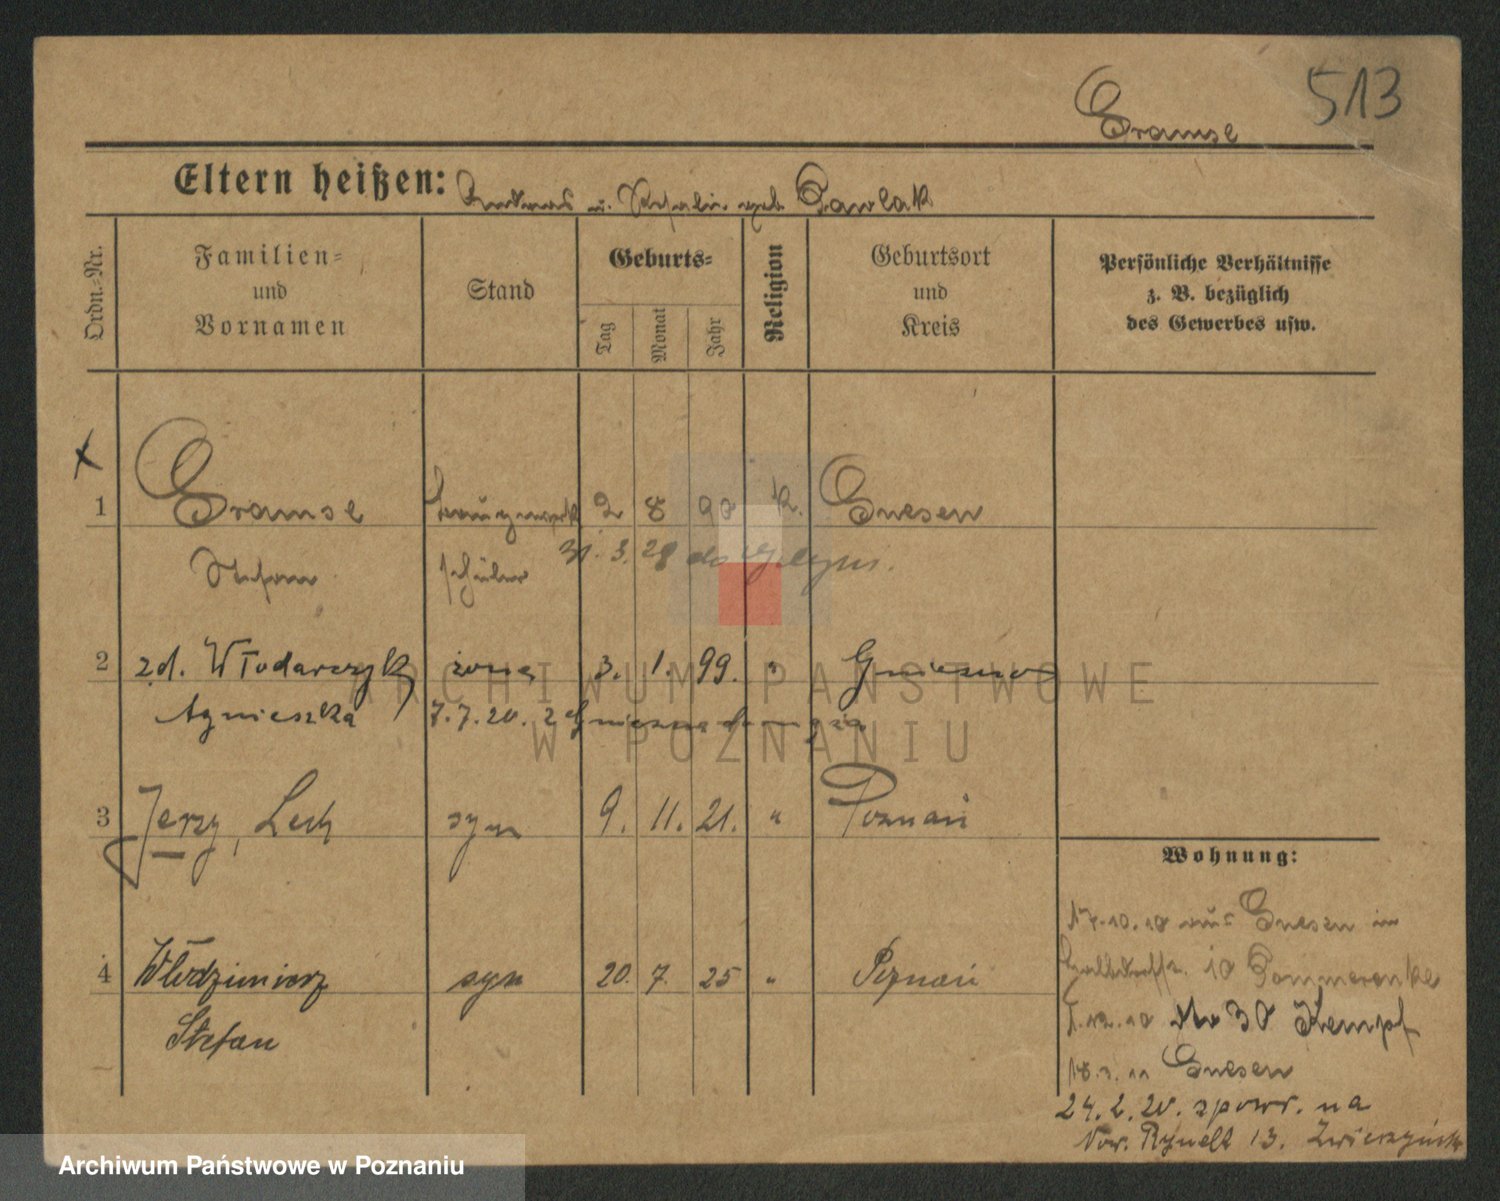 513
Gramse
Eltern heißen: Andreas u. geb. Pawlak
Ordn.-Nr.
Familien-
und
Vornamen
Stand
Geburts-
Tag
Monat
Jahr
Religion
Geburtsort
und
Kreis
Persönliche Verhältnisse
z. B. bezüglich
des Gewerbes usw.
1 Gramse 2 8 90 k. Gnesen
31. 3. 28 do
Stefan schüler
2 zd. Włodarczyk żona 3. 1. 99. " Gniezno
Agnieszka 7. 7. 20. z Gniezna do męża
3 Jerzy, Lech syn 9. 11. 21. " Poznań
4 Włodzimierz syn 20. 7. 25 " Poznań
Stefan
Wohnung:
17.10.10 aus Gnesen in
10 Pommerenke
30 Kempf
Gnesen
24. 2. 20. z powr. na
Now. Rynek 13.
ARCHIWUM PAŃSTWOWE
W POZNANIU
Archiwum Państwowe w Poznaniu